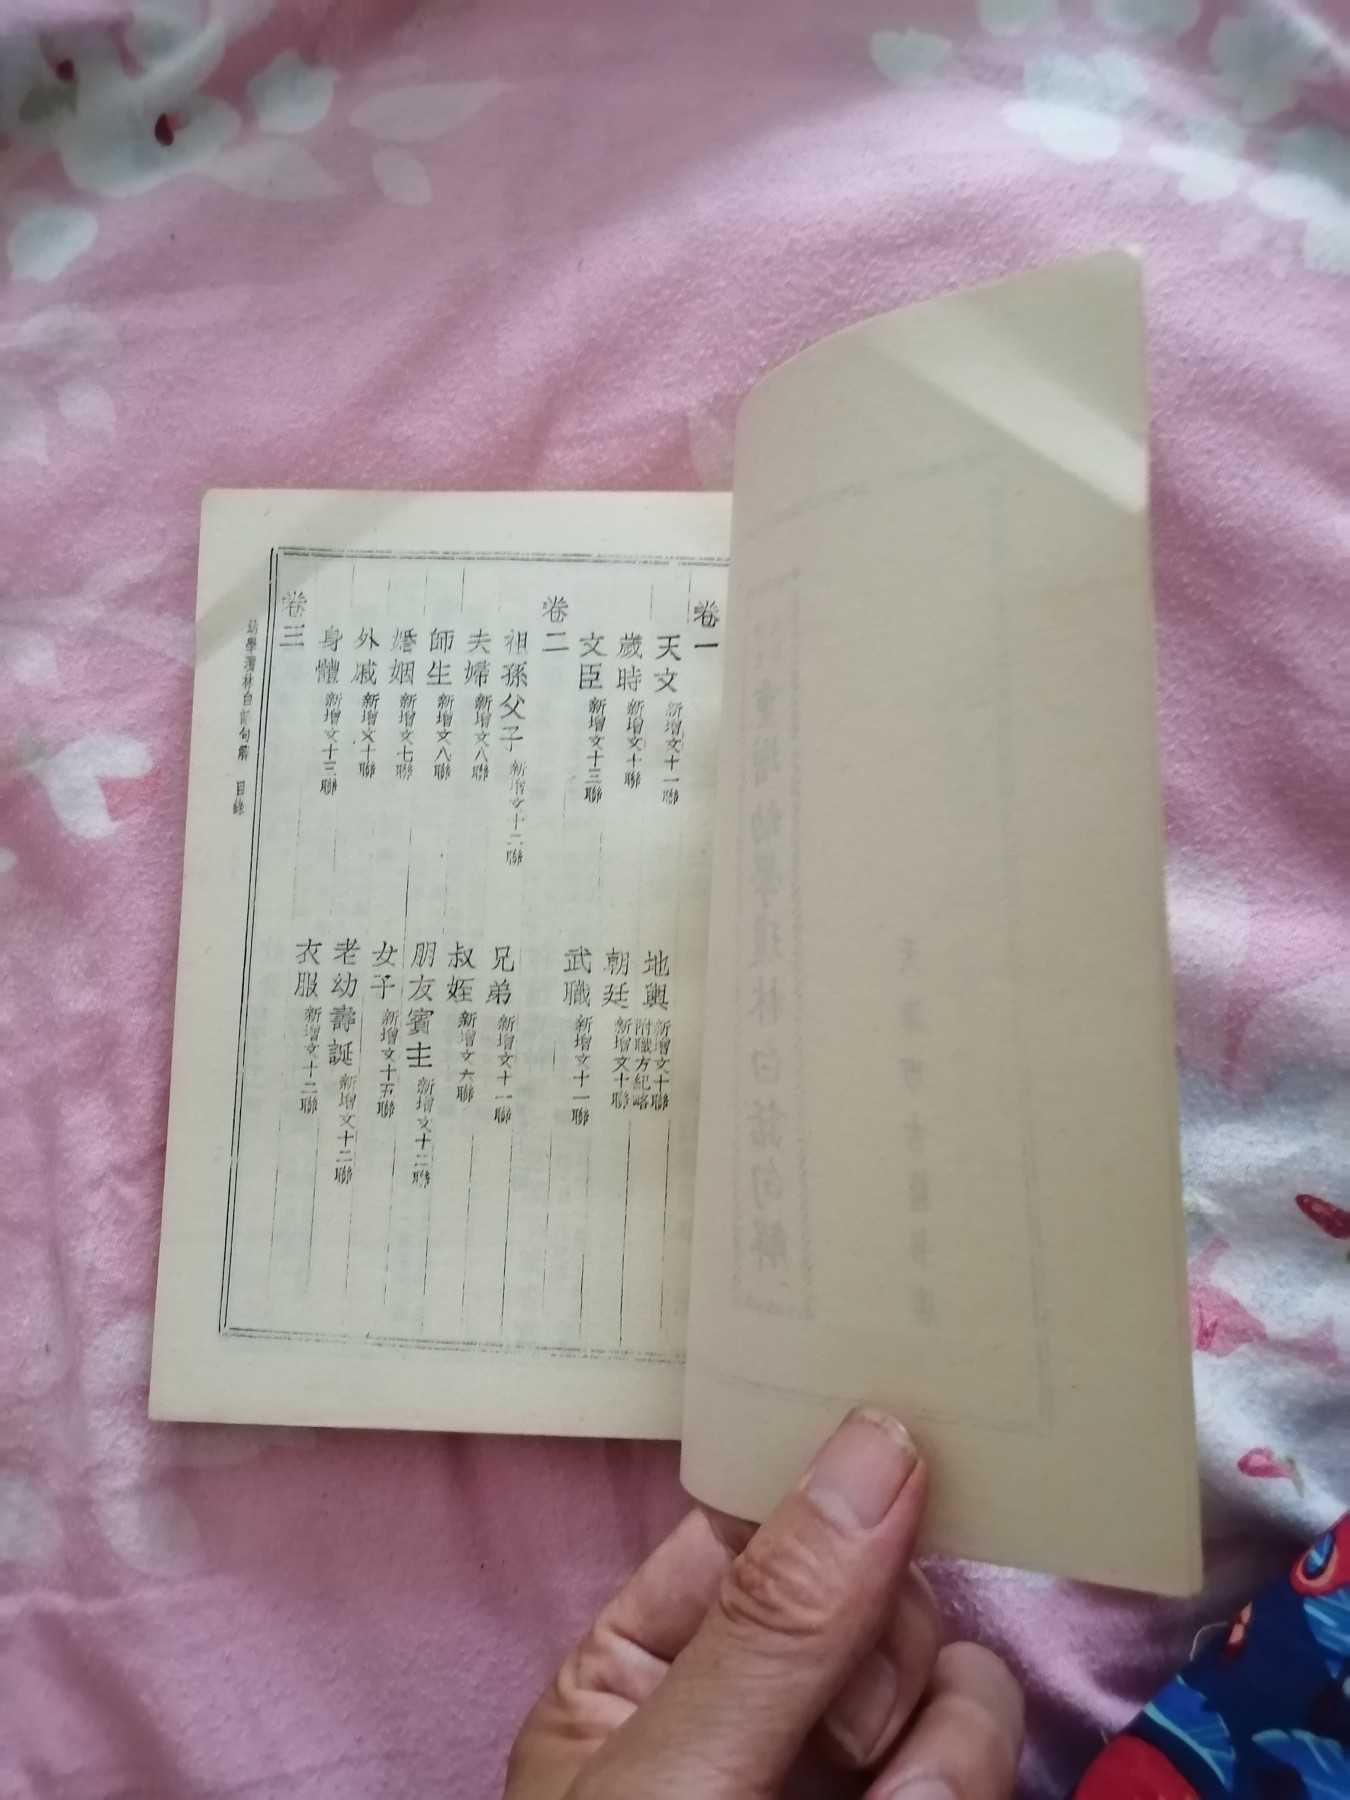 卷一
天文 新增文十一聯
地輿 新增文十聯 附職方紀略
歲時 新增文十聯
朝廷 新增文十聯
文臣 新增文十三聯
武職 新增文十一聯
卷二
祖孫父子 新增文十二聯
兄弟 新增文十一聯
夫婦 新增文八聯
叔姪 新增文六聯
師生 新增文八聯
朋友賓主 新增文十二聯
婚姻 新增文七聯
女子 新增文十五聯
外戚 新增文十聯
老幼壽誕 新增文十二聯
身體 新增文十三聯
衣服 新增文十二聯
卷三
幼學瓊林白話句解 目錄
重增幼學瓊林白話句解
天津市古籍書店